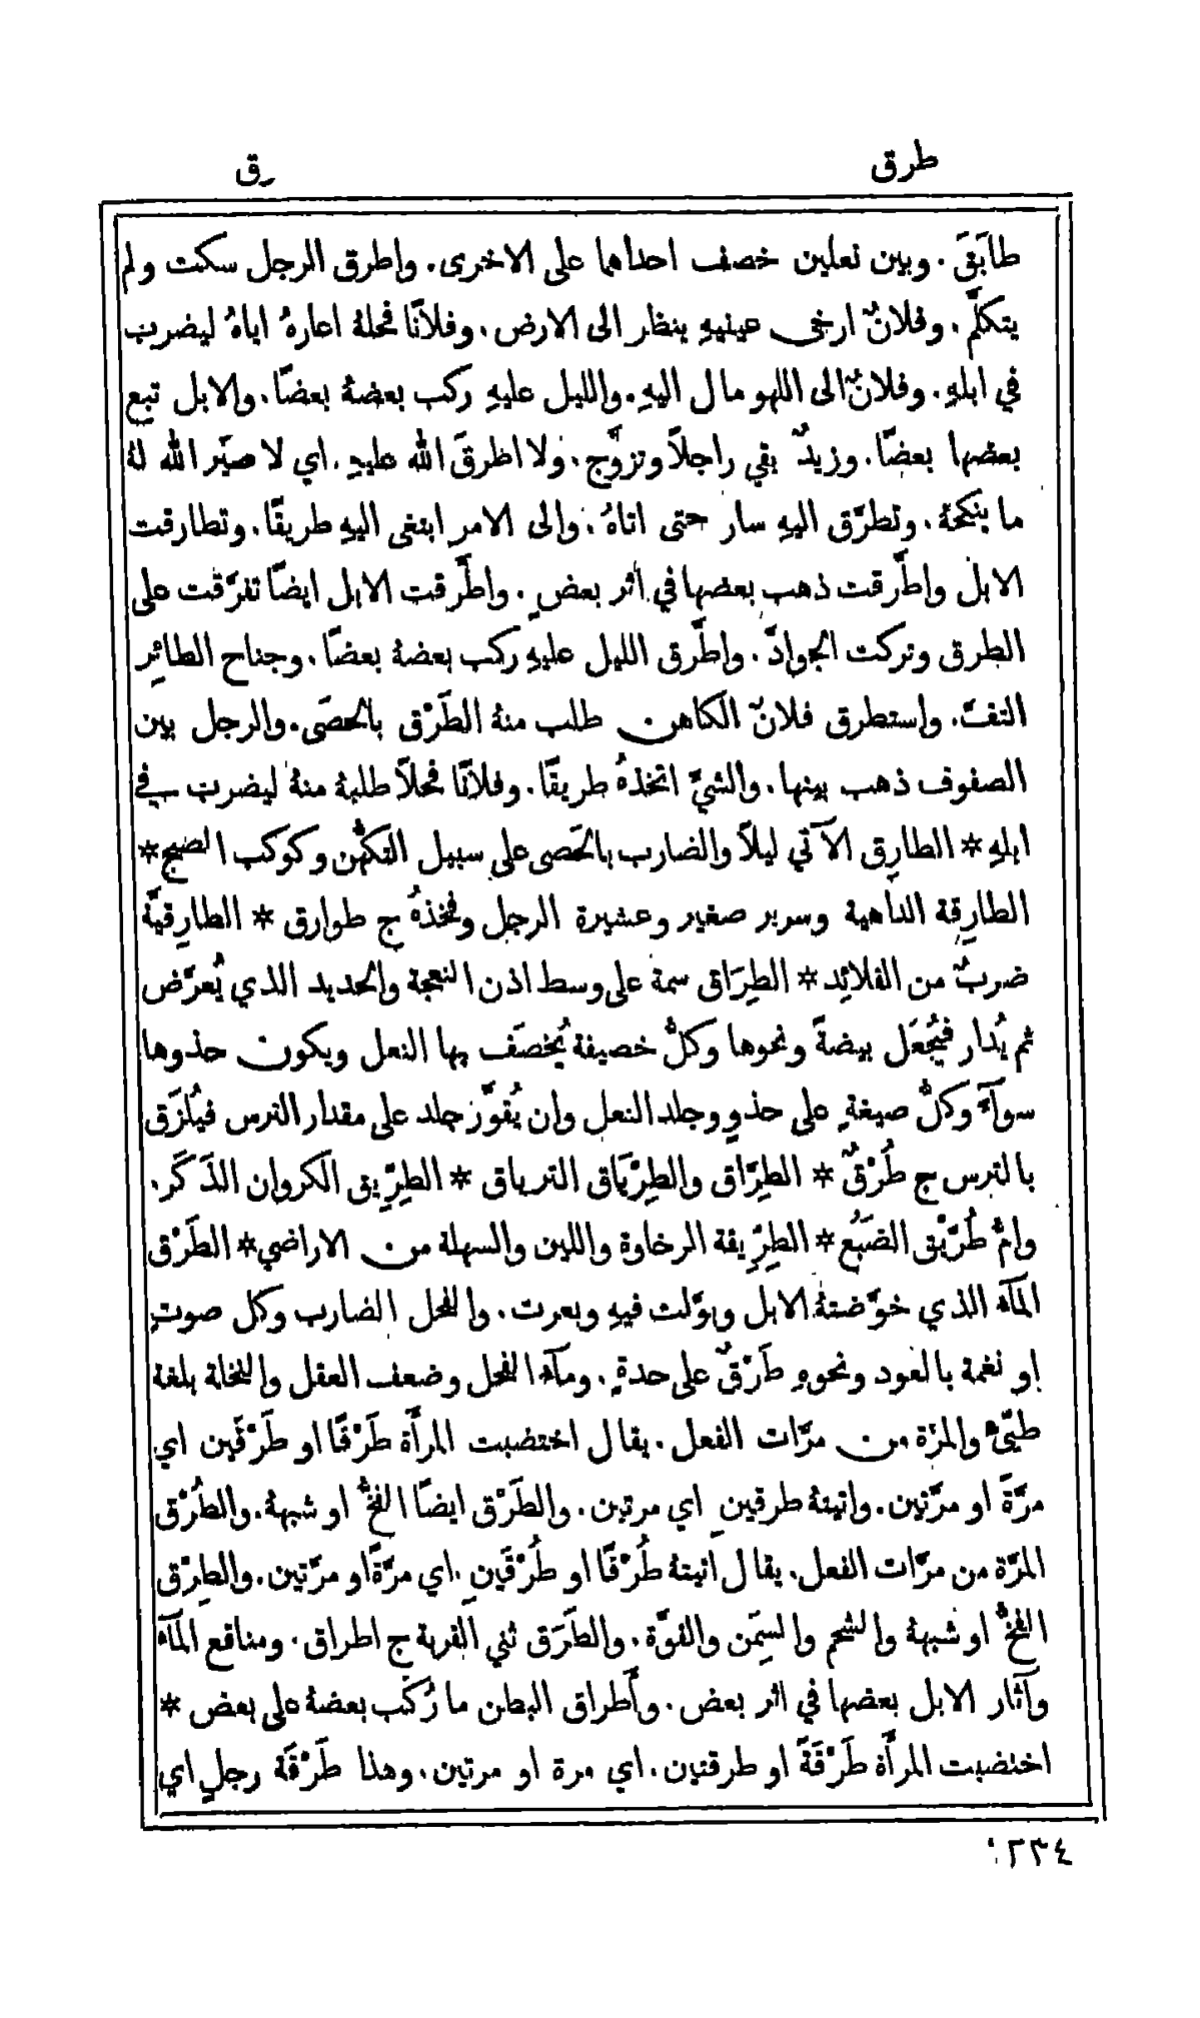 طرق
رق
طابَقَ. وبين نعلين خصف احداهما على الاخرى. واطرق الرجل سكت ولم
يتكلَّم. وفلانٌ ارخى عينيهِ ينظر الى الارض. وفلانًا فحلهُ اعارهُ اياهُ ليضرب
في ابلهِ. وفلانٌ الى اللهو مال اليهِ. والليل عليهِ ركب بعضهُ بعضًا. والابل تبع
بعضها بعضًا. وزيدٌ بقي راجلًا وتزوَّج. ولا اطرقَ الله عليهِ. اي لا صيَّر الله لهُ
ما ينكحهُ. وتطرَّق اليهِ سار حتى اتاهُ. والى الامر ابتغى اليهِ طريقًا. وتطارقت
الابل واطَّرقت ذهب بعضها في أثر بعضٍ. واطَّرقت الابل ايضًا تفرَّقت على
الطرق وتركت الجوادَّ. واطَّرق الليل عليهِ ركب بعضهُ بعضًا. وجناح الطائِر
التفَّ. واستطرق فلانٌ الكاهن طلب منهُ الطَرْق بالحصَى. والرجل بين
الصفوف ذهب بينها. والشيَّ اتخذهُ طريقًا. وفلانًا فحلًا طلبهُ منهُ ليضرب في
ابلهِ * الطارِق الآتي ليلًا والضارب بالحَصى على سبيل التكهُّن وكوكب الصبح *
الطارِقة الداهية وسرير صغير وعشيرة الرجل وفخذهُ ج طوارق * الطارِقيَّة
ضربٌ من القلائِد * الطِرَاق سمة على وسط اذن النعجة والحديد الذي يُعرَّض
ثم يُدار فيُجُعَل بيضةً ونحوها وكلُّ خصيفة يُخصَف بها النعل ويكون حذوها
سوآءً وكلُّ صيغةٍ على حذوٍ وجلد النعل وان يُقوَّر جلد على مقدار الترس فيُلزَق
بالترس ج طُرْقٌ * الطِرَّاق والطِرْيَاق الترياق * الطِرِّيق الكروان الذَكَر.
وامُّ طُرَّيْق الضَبُع * الطِرِّيقة الرخاوة واللين والسهلة من الاراضي * الطَرْق
المآء الذي خوَّضتهُ الابل وبوَّلت فيهِ وبعرت. والفحل الضارب وكل صوتٍ
او نغمة بالعود ونحوهِ طَرْقٌ على حدةٍ. ومآء الفحل وضعف العقل والنخلة بلغة
طيّئٍ والمرَّة من مرَّات الفعل. يقال اختضبت المرأَة طَرْقًا او طَرْقَين اي
مرَّةً او مرَّتين. واتيتهُ طرقينِ اي مرتين. والطَرْق ايضًا الفخُّ او شبههُ. والطُرْق
المرَّة من مرَّات الفعل. يقال اتيتهُ طُرْقًا او طُرْقَينِ. اي مرَّةً او مرَّتين. والطِرْق
الفخُّ او شبههُ والشحم والسِمَن والقوَّة. والطَرَق ثني القربة ج اطراق. ومناقع المآء
وآثار الابل بعضها في اثر بعض. وأَطراق البطن ما رُكّب بعضهُ على بعض *
اختضبت المرأَة طَرْقَةً او طرقتين. اي مرة او مرتين. وهذا طَرْقَة رجلٍ اي
٢٣٤